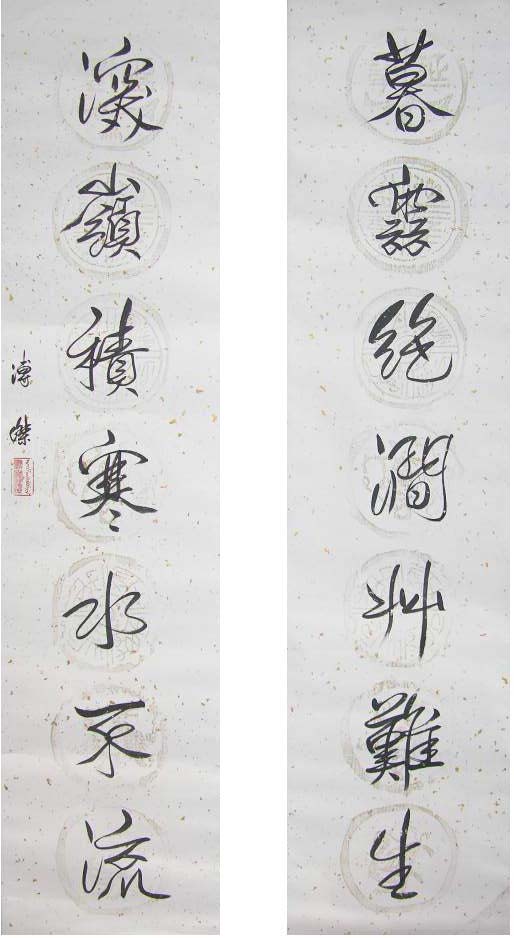 暮絶澗艸難生
深嶺積寒水不流
溥傑